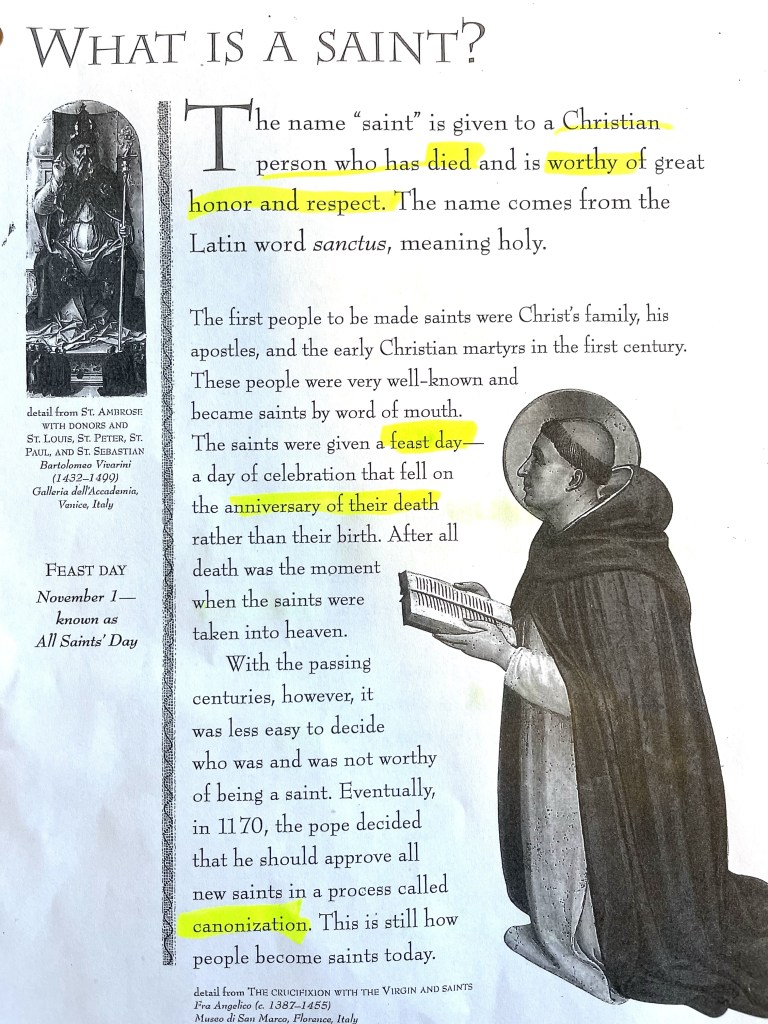 WHAT IS A SAINT?
The name “saint” is given to a Christian
person who has died and is worthy of great
honor and respect. The name comes from the
Latin word sanctus, meaning holy.
The first people to be made saints were Christ’s family, his
apostles, and the early Christian martyrs in the first century.
These people were very well-known and
became saints by word of mouth.
The saints were given a feast day—
a day of celebration that fell on
the anniversary of their death
rather than their birth. After all
death was the moment
when the saints were
taken into heaven.
With the passing
centuries, however, it
was less easy to decide
who was and was not worthy
of being a saint. Eventually,
in 1170, the pope decided
that he should approve all
new saints in a process called
canonization. This is still how
people become saints today.
detail from THE CRUCIFIXION WITH THE VIRGIN AND SAINTS
Fra Angelico (c. 1387–1455)
Museo di San Marco, Florence, Italy
detail from ST. AMBROSE
WITH DONORS AND
ST. LOUIS, ST. PETER, ST.
PAUL, AND ST. SEBASTIAN
Bartolomeo Vivarini
(1432–1499)
Galleria dell’Accademia,
Venice, Italy
FEAST DAY
November 1—
known as
All Saints’ Day